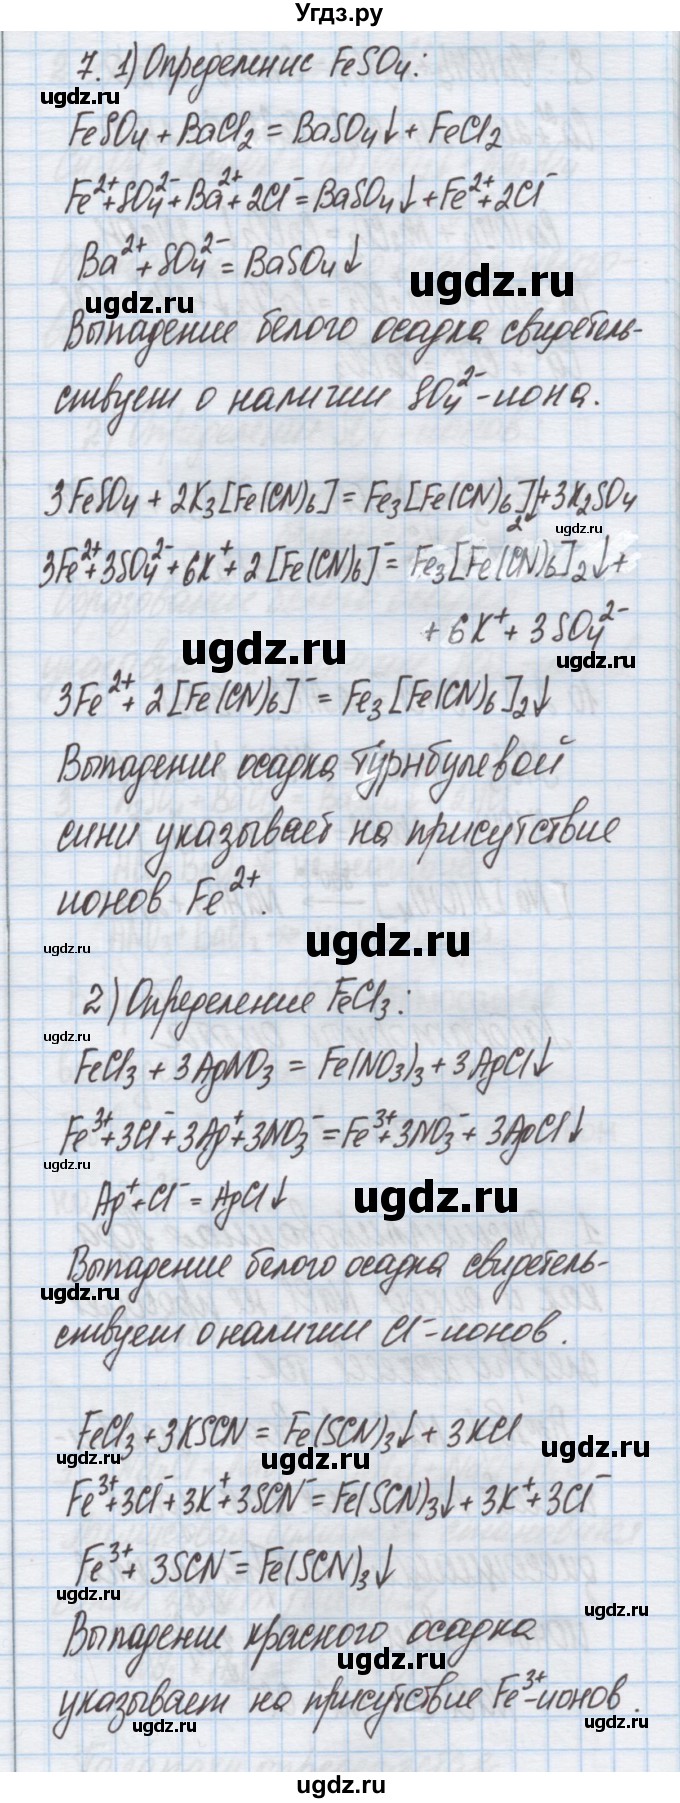 Угдз.ру
7. 1) Определение FeSO₄:
ugdz.ru
FeSO₄ + BaCl₂ = BaSO₄↓ + FeCl₂
Fe²⁺ + SO₄²⁻ + Ba²⁺ + 2Cl⁻ = BaSO₄↓ + Fe²⁺ + 2Cl⁻
Ba²⁺ + SO₄²⁻ = BaSO₄↓
ugdz.ru ugdz.ru
Выпадение белого осадка свидетель-
ствует о наличии SO₄²⁻-иона.
3FeSO₄ + 2K₃[Fe(CN)₆] = Fe₃[Fe(CN)₆]₂↓ + 3K₂SO₄
ugdz.ru
3Fe²⁺ + 3SO₄²⁻ + 6K⁺ + 2[Fe(CN)₆]⁻ = Fe₃[Fe(CN)₆]₂↓ +
+ 6K⁺ + 3SO₄²⁻
ugdz.ru ugdz.ru
3Fe²⁺ + 2[Fe(CN)₆]⁻ = Fe₃[Fe(CN)₆]₂↓
Выпадение осадка турнбулевой
сини указывает на присутствие
ионов Fe²⁺.
ugdz.ru ugdz.ru
2) Определение FeCl₃:
ugdz.ru
FeCl₃ + 3AgNO₃ = Fe(NO₃)₃ + 3AgCl↓
Fe³⁺ + 3Cl⁻ + 3Ag⁺ + 3NO₃⁻ = Fe³⁺ + 3NO₃⁻ + 3AgCl↓
ugdz.ru
Ag⁺ + Cl⁻ = AgCl↓
ugdz.ru
Выпадение белого осадка свидетель-
ugdz.ru
ствует о наличии Cl⁻-ионов.
FeCl₃ + 3KSCN = Fe(SCN)₃↓ + 3KCl
ugdz.ru ugdz.ru ugdz.ru
Fe³⁺ + 3Cl⁻ + 3K⁺ + 3SCN⁻ = Fe(SCN)₃↓ + 3K⁺ + 3Cl⁻
Fe³⁺ + 3SCN⁻ = Fe(SCN)₃↓
ugdz.ru ugdz.ru
Выпадение красного осадка
ugdz.ru
указывает на присутствие Fe³⁺-ионов.
ugdz.ru ugdz.ru
ugdz.ru